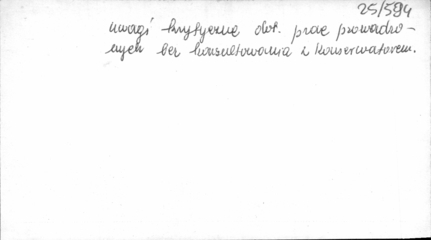 25/594
uwagi krytyczne dot. prac prowadzo-
nych bez konsultowania z konserwatorem.